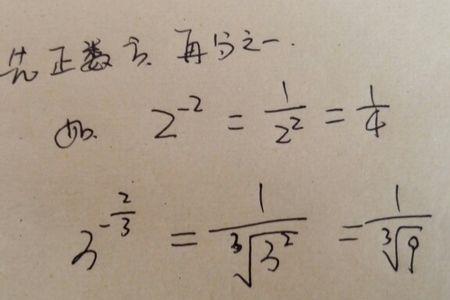 先正数方,再分之一.
如. 2⁻² = 1/2² = 1/4
3^(-2/3) = 1/∛(3²) = 1/∛9